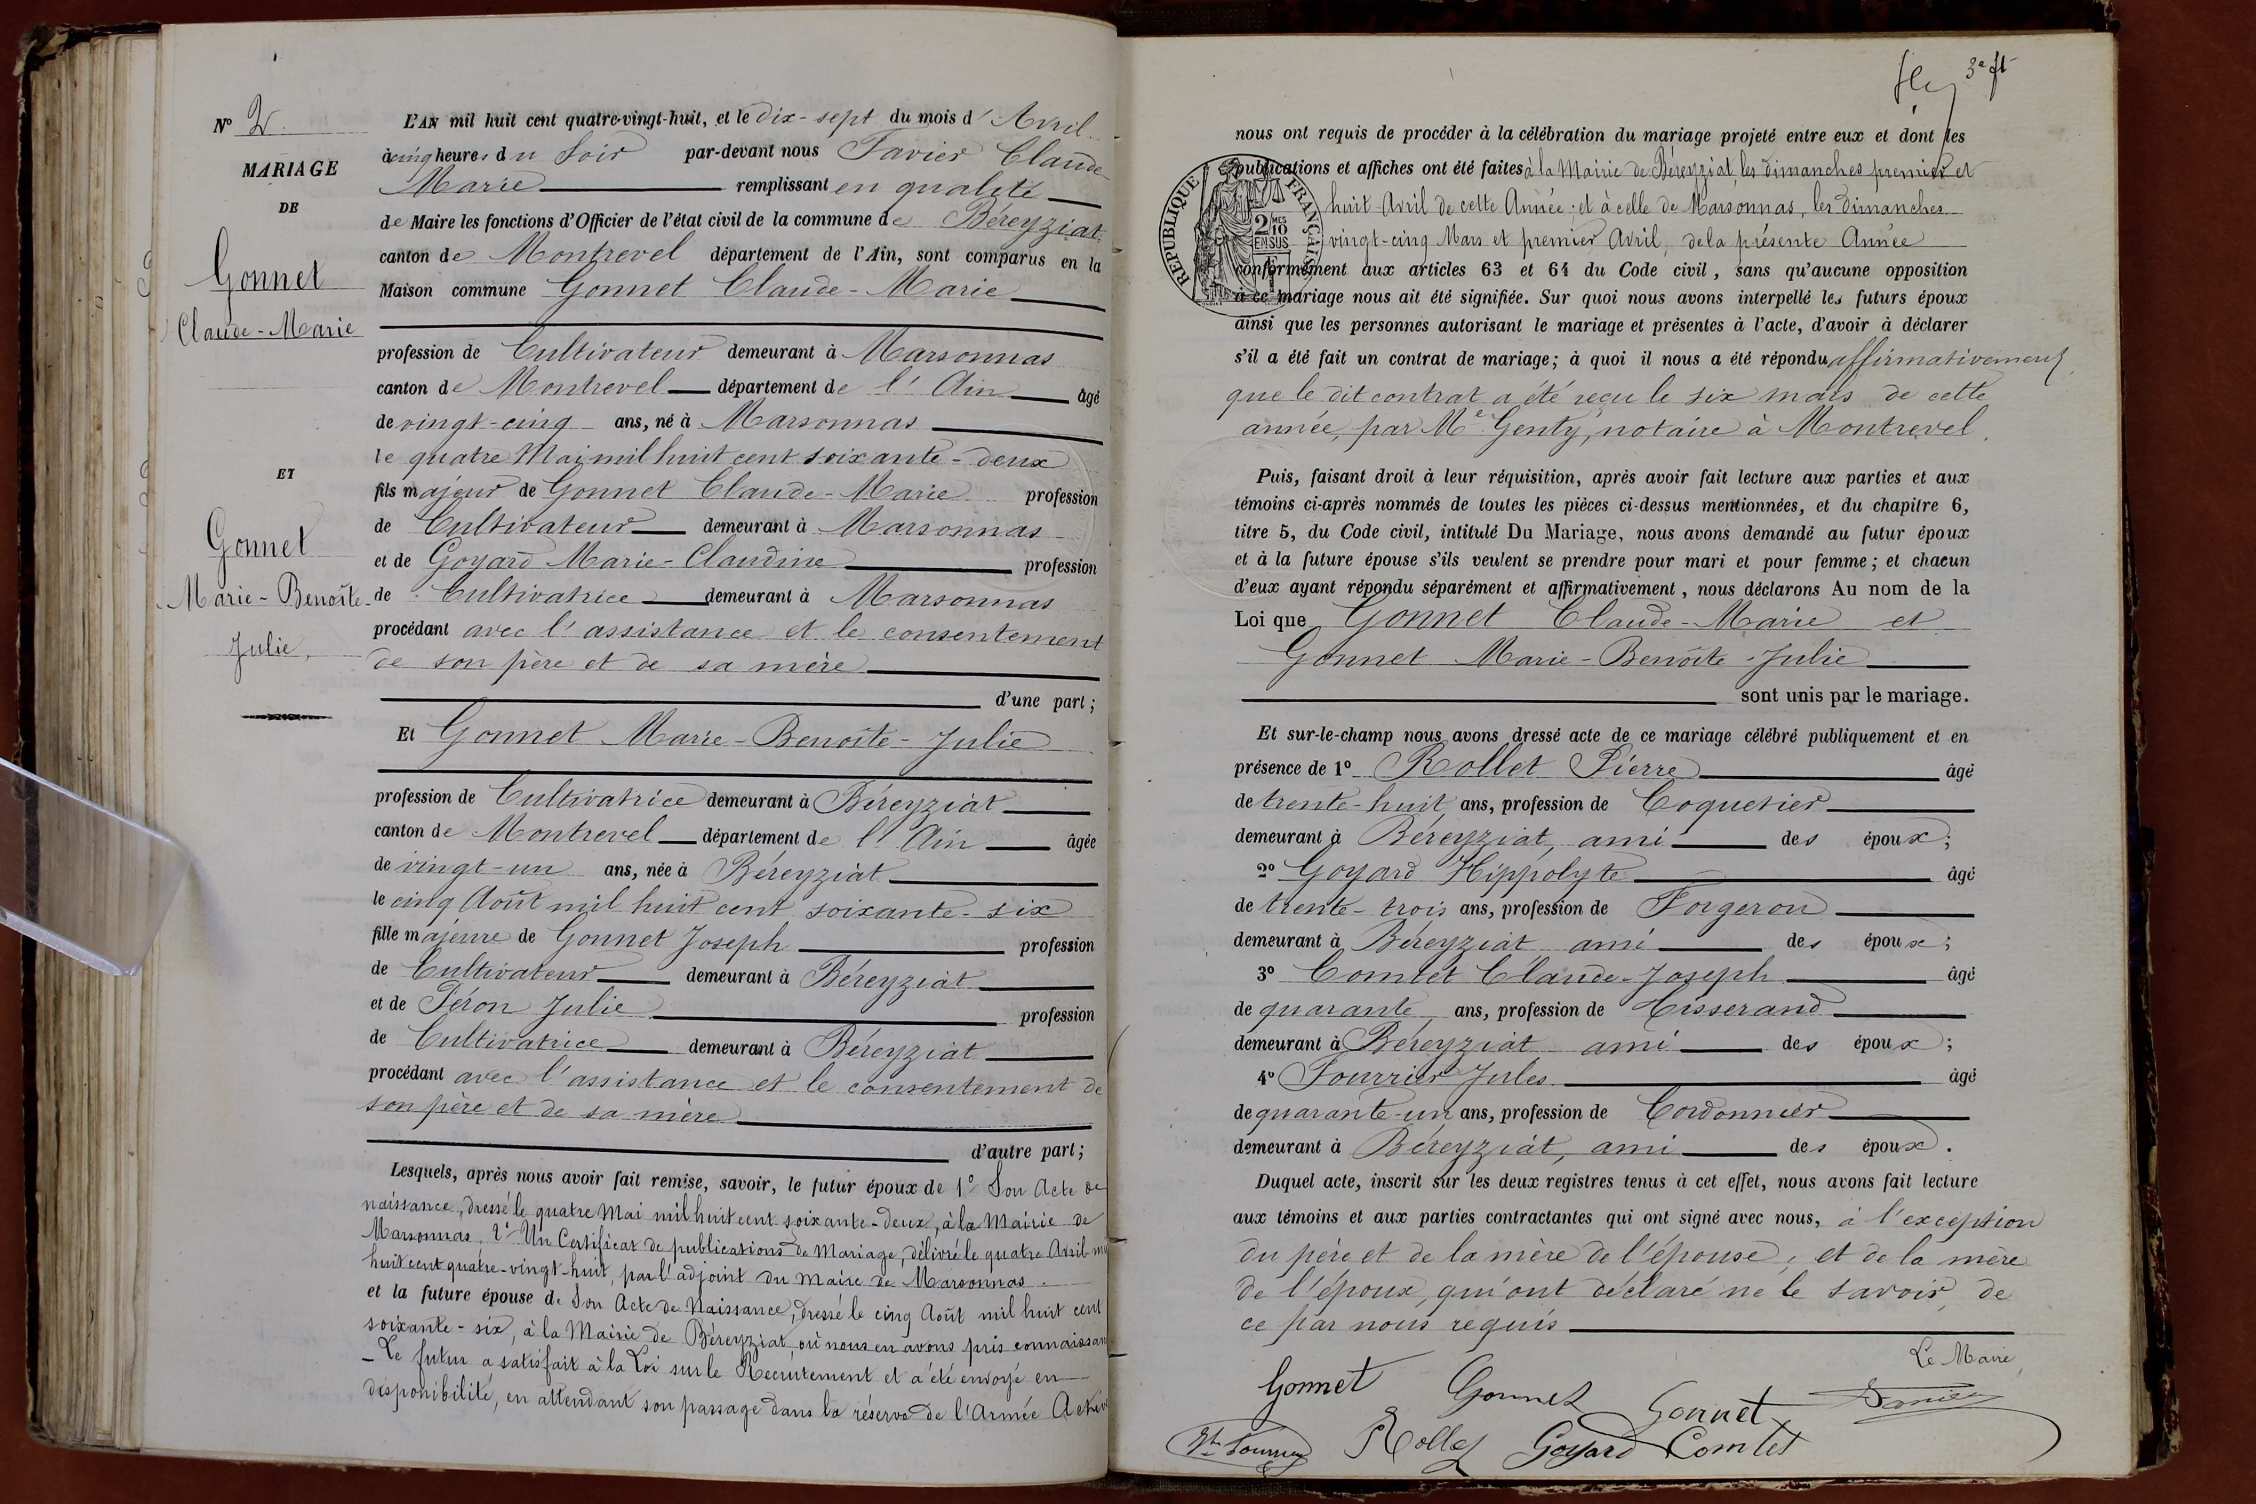 N° 2
MARIAGE
DE
Gonnet
Claude-Marie
ET
Gonnet
Marie-Benoîte
Julie,
L'AN mil huit cent quatre-vingt-huit, et le dix-sept du mois d'Avril
à cinq heures du soir par-devant nous Favier Claude
Marie remplissant en qualité
de Maire les fonctions d'Officier de l'état civil de la commune de Béreyziat
canton de Montrevel département de l'Ain, sont comparus en la
Maison commune Gonnet Claude-Marie
profession de Cultivateur demeurant à Marsonnas
canton de Montrevel département de l'Ain âgé
de vingt-cinq ans, né à Marsonnas
le quatre Mai mil huit cent soixante-deux
fils majeur de Gonnet Claude-Marie profession
de Cultivateur demeurant à Marsonnas
et de Goyard Marie-Claudine profession
de Cultivatrice demeurant à Marsonnas
procédant avec l'assistance et le consentement
de son père et de sa mère
d'une part;
Et Gonnet Marie-Benoîte-Julie
profession de Cultivatrice demeurant à Béreyziat
canton de Montrevel département de l'Ain âgée
de vingt-un ans, née à Béreyziat
le cinq Août mil huit cent soixante-six
fille majeure de Gonnet Joseph profession
de Cultivateur demeurant à Béreyziat
et de Féron Julie profession
de Cultivatrice demeurant à Béreyziat
procédant avec l'assistance et le consentement de
son père et de sa mère
d'autre part;
Lesquels, après nous avoir fait remise, savoir, le futur époux de 1° Son Acte de
naissance, dressé le quatre Mai mil huit cent soixante-deux, à la Mairie de
Marsonnas. 2° Un Certificat de publications de Mariage, délivré le quatre Avril mil
huit cent quatre-vingt-huit, par l'adjoint du Maire de Marsonnas.
et la future épouse de Son Acte de Naissance, dressé le cinq Août mil huit cent
soixante-six, à la Mairie de Béreyziat, où nous en avons pris connaissan
Le futur a satisfait à la Loi sur le Recrutement et a été envoyé en
disponibilité, en attendant son passage dans la réserve de l'Armée Active
3e ft
nous ont requis de procéder à la célébration du mariage projeté entre eux et dont les
publications et affiches ont été faites à la Mairie de Béreyziat, les dimanches premier et
huit Avril de cette Année; et à celle de Marsonnas, les dimanches
vingt-cinq Mars et premier Avril, de la présente Année
RÉPUBLIQUE FRANÇAISE
2 MES 10
EN SUS
conformément aux articles 63 et 64 du Code civil, sans qu'aucune opposition
à ce mariage nous ait été signifiée. Sur quoi nous avons interpellé les futurs époux
ainsi que les personnes autorisant le mariage et présentes à l'acte, d'avoir à déclarer
s'il a été fait un contrat de mariage; à quoi il nous a été répondu affirmativement
que le dit contrat a été reçu le six mars de cette
année, par Me Genty, notaire à Montrevel.
Puis, faisant droit à leur réquisition, après avoir fait lecture aux parties et aux
témoins ci-après nommés de toutes les pièces ci-dessus mentionnées, et du chapitre 6,
titre 5, du Code civil, intitulé Du Mariage, nous avons demandé au futur époux
et à la future épouse s'ils veulent se prendre pour mari et pour femme; et chacun
d'eux ayant répondu séparément et affirmativement, nous déclarons Au nom de la
Loi que Gonnet Claude-Marie et
Gonnet Marie-Benoîte-Julie
sont unis par le mariage.
Et sur-le-champ nous avons dressé acte de ce mariage célébré publiquement et en
présence de 1° Rollet Pierre âgé
de trente-huit ans, profession de Coquetier
demeurant à Béreyziat, ami des époux;
2° Goyard Hippolyte âgé
de trente-trois ans, profession de Forgeron
demeurant à Béreyziat ami des époux;
3° Comtet Claude-Joseph âgé
de quarante ans, profession de Tisserand
demeurant à Béreyziat ami des époux;
4° Fourrier Jules âgé
de quarante-un ans, profession de Cordonnier
demeurant à Béreyziat, ami des époux.
Duquel acte, inscrit sur les deux registres tenus à cet effet, nous avons fait lecture
aux témoins et aux parties contractantes qui ont signé avec nous, à l'exception
du père et de la mère de l'épouse, et de la mère
de l'époux, qui ont déclaré ne le savoir, de
ce par nous requis
Le Maire,
Gonnet Gonnet Gonnet
Rollet Goyard Comtet